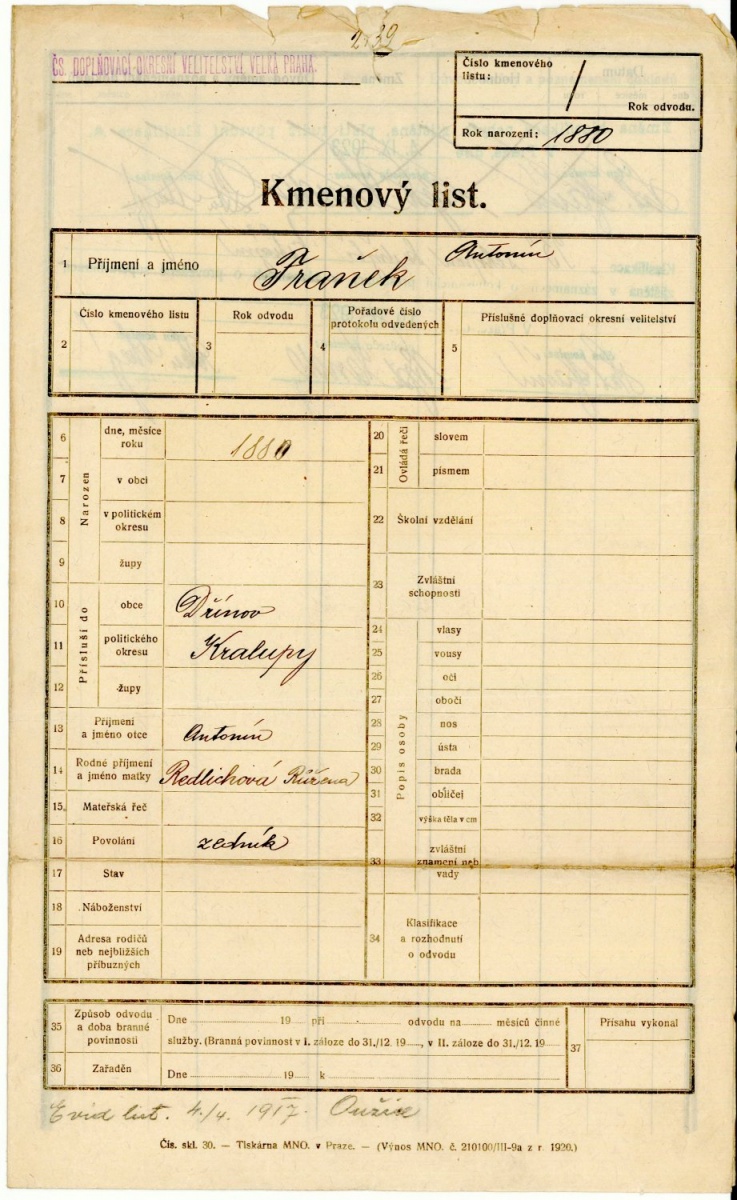 39
ČS. DOPLŇOVACÍ OKRESNÍ VELITELSTVÍ VELKÁ PRAHA.
Číslo kmenového
listu: /
Rok odvodu.
Rok narození: 1880
Kmenový list.
1 Příjmení a jméno Franěk Antonín
2 Číslo kmenového listu
3 Rok odvodu
4 Pořadové číslo
protokolu odvedených
5 Příslušné doplňovací okresní velitelství
Narozen
6 dne, měsíce
roku 1880
7 v obci
8 v politickém
okresu
9 župy
Přísluší do
10 obce Dřínov
11 politického
okresu Kralupy
12 župy
13 Příjmení
a jméno otce Antonín
14 Rodné příjmení
a jméno matky Redlichová Růžena
15. Mateřská řeč
16 Povolání zedník
17 Stav
18 Náboženství
19 Adresa rodičů
neb nejbližších
příbuzných
Ovládá řeči
20 slovem
21 písmem
22 Školní vzdělání
23 Zvláštní
schopnosti
Popis osoby
24 vlasy
25 vousy
26 oči
27 obočí
28 nos
29 ústa
30 brada
31 obličej
32 výška těla v cm
33 zvláštní
znamení neb
vady
34 Klasifikace
a rozhodnutí
o odvodu
35 Způsob odvodu
a doba branné
povinnosti
Dne 19 při odvodu na měsíců činné
služby. (Branná povinnost v I. záloze do 31./12. 19, v II. záloze do 31./12. 19
36 Zařaděn
Dne 19 k
37 Přísahu vykonal
Evid list. 4./4. 1917.
Čís. skl. 30. — Tiskárna MNO. v Praze. — (Výnos MNO. č. 210100/III-9a z r. 1920.)